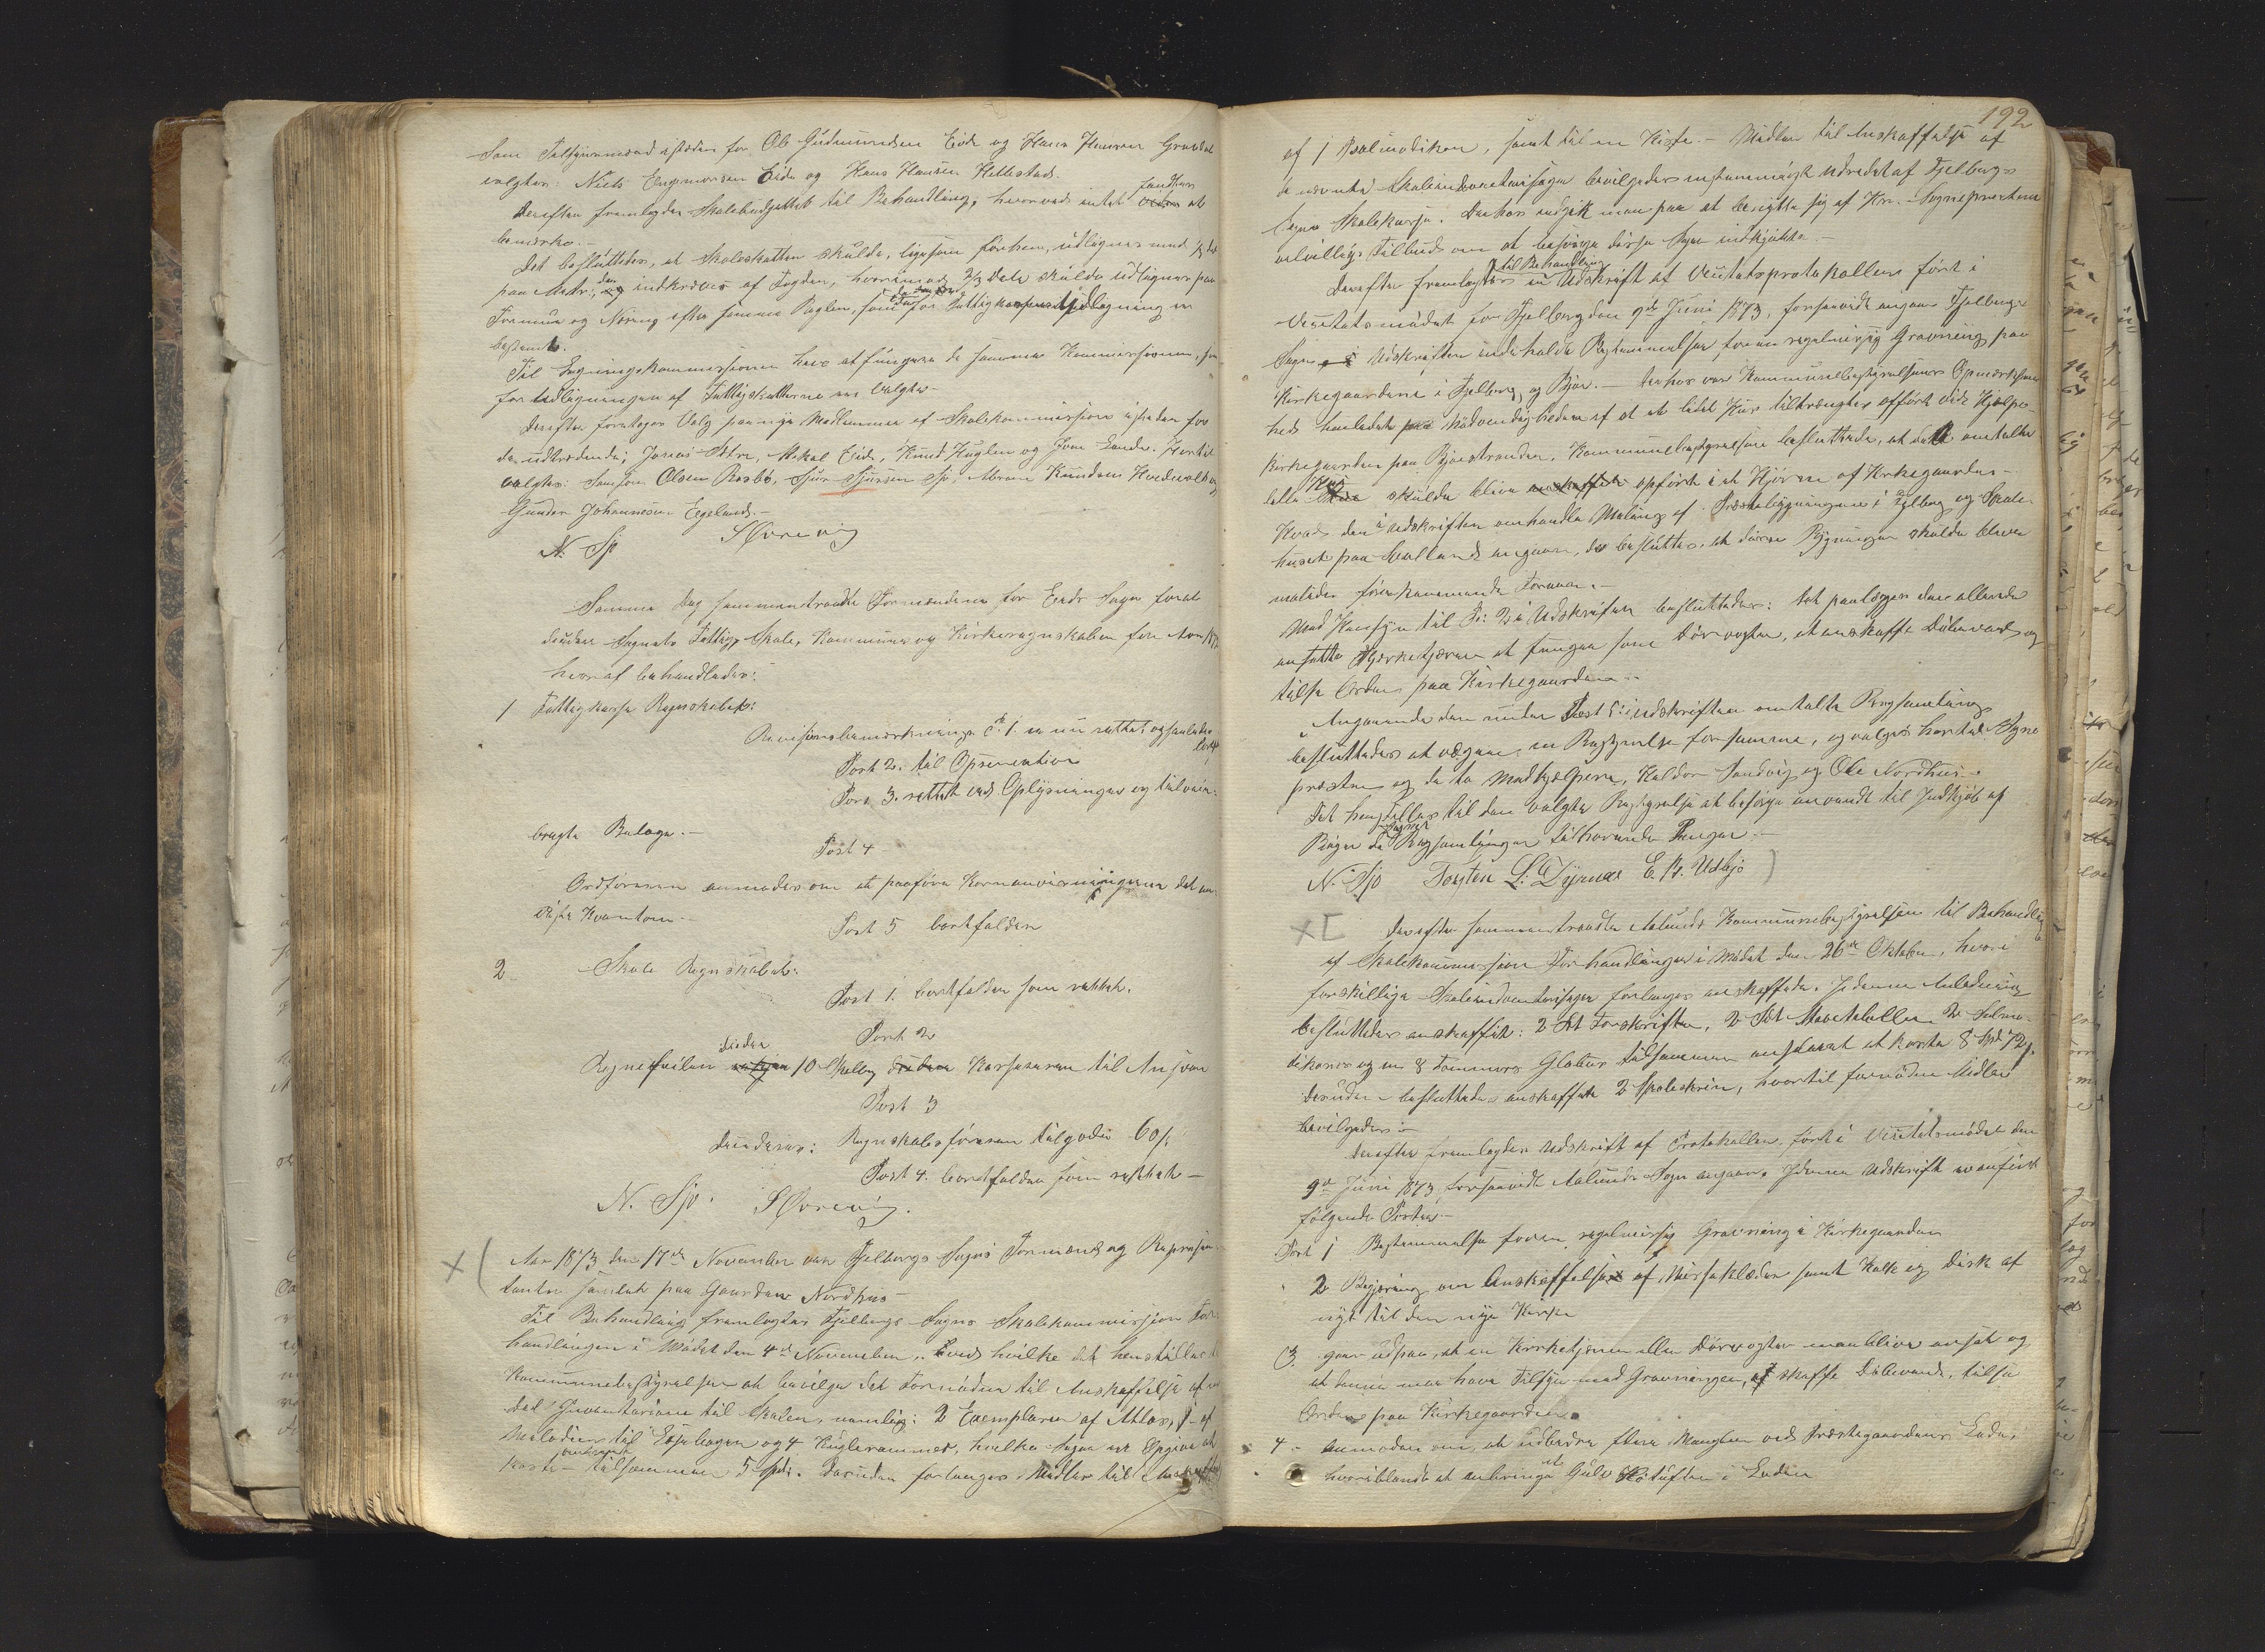 Som Tilsynsmænd istæden for Ole Gudmundsen Eide og Hans Hansen Grindal
valgtes: Niels Engmonsen Eide og Hans Hansen Hellestad.
Derefter fremlagdes Skolebudgettet til Behandling, hvorved intet fandtes at
bemærke.
Det besluttedes, at Skoleskatten skulde, ligesom forhen, udlignes med 1/3 Del
paa Matr:, den indkræves af Fogden, hvorimod 2/3 Dele skulde udlignes paa
Formue og Næring efter samme Regler, som for Fattigkassens Udligning er
bestemt.
Til Ligningskommissionen have at fungere de samme Kommissioner, som
for Udligningen af Fattigskatterne ere valgte.
Derefter foretoges Valg paa nye Medlemmer af Skolekommissionen istæden for
de udtrædende; Jonas Sætre, Mikal Eide, Knud Huglen og Jon Lande. Hertil
valgtes: Samson Olsen Rosbø, Sjur Sjursen Sjo, Abram Knudsen Hvedevold og
Gunder Johannesen Egeland.
N. Sjo S Øvrevig
Samme Dag sammentraadte Formændene for Eids Sogn forat
decidere Sognets Fattig, Skole, Kommune og Kirkeregnskaber for Aaret 1872
hvoraf behandledes:
1 Fattigkasse Regnskabet:
Revisionsbemærkninger P. 1 er nu rettet og saaledes
bortf.
Post 2. til Observation
Post 3. rettet ved Oplysninger og tilveie-
bragte Bilage.
Post 4
Ordføreren anmodes om at paaføre Kornanvisningerne det an-
viste Kvantum.
Post 5 bortfalder
2 Skole Regnskabet:
Post 1. bortfalder som rettet.
Post 2
Regnefeilen 10 Skelling decideres Kassereren til Ansvar
Post 3
Decideres: Regnskabsføreren tilgode 60 s
Post 4. bortfalder som rettet
N. Sjo. S Øvrevig.
Aar 1873 den 17de November var Fjelbergs Sogns Formænd og Repræsen-
tanter samlet paa Gaarden Nordhus
Til Behandling fremlagdes Fjelbergs Sogns Skolekommissions For-
handlinger i Mødet den 4de November, hvilke det henstilles til
Kommunebestyrelsen at bevilge det Fornødne til Anskaffelse af en
Del Inventarium til Skolen, nemlig: 2 Exemplarer af Atlas, 1 af
Melodier til Psalmebogen og 4 Kuglerammer, hvilke Sager er Opgivet at
koste tilsammen 5 Spd. Desuden forlanges Midler til Anskaffelse
192
af 1 Psalmodikon, samt til en Kiste. Midler til Anskaffelse af
de nævnte Skoleinventariesager bevilgedes enstemmigt udredet af Fjelbergs
Sogns Skolekasse. Derhos indgik man paa at benytte sig af Hr. Sognepræstens
velvillige Tilbud om at besørge disse Sager indkjøbte.
Derefter fremlagdes til Behandling en Udskrift af Visitatsprotokollen ført i
Visitatsmødet for Fjelberg den 9de Juni 1873, forsaavidt angaar Fjelbergs
Sogn. Udskriften indeholdt Bestemmelse for en regelmæssig Gravning paa
Kirkegaardene i Fjelberg og Bjoe. Derhos var Kommunebestyrelsens Opmærksom-
hed henledet paa Nødvendigheden af at et lidet Hus tiltrængtes opført ved Hjælpe-
kirkegaarden paa Bjoestranden. Kommunebestyrelsen besluttede, at det omtalte
lille Hus skulde blive opført i et Hjørne af Kirkegaarden.
Hvad den i Udskriften omhandlede Maling af Præstebygningerne i Fjelberg og Skole-
huset paa Valland angaar, da besluttes, at disse Bygninger skulde blive
malede førstkommende Foraar.
Med Hensyn til P: 2 i Udskriften besluttedes: at paalægge den allerede
ansatte Kirketjener at fungere som Dørvogter, at anskaffe Døbevand og
tilse Orden paa Kirkegaarden.
Angaaende den under Post 5 i Udskriften omtalte Bogsamling
besluttedes at vælges en Bestyrelse for samme, og valgtes hertil Sogne-
præsten og de to Medhjælpere, Haldor Sandvig og Ole Nordhus.
Det henstilles til den valgte Bestyrelse at besørge anvendt til Indkjøb af
Bøger de Sognets Bogsamlinger tilhørende Penge.
N. Sjo Torsten L: Dyrnes E. K. Udbjo
Derefter sammentraadte Aalunds Kommunebestyrelse til Behandling
af Skolekommissions Forhandlinger i Mødet den 26de Oktober, hvori
forskellige Skoleinventariesager forlanges anskaffede. I denne Anledning
besluttedes anskaffet: 2 Sæt Forskrifter, 2 Sæt Maaltabeller 2 Salmo-
dikoner og en 8 Tommers Globus tilsammen anslaaet at koste 8 Spd 72 s.
Desuden besluttedes anskaffet 2 Skoleskrin, hvortil fornødne Midler
bevilgedes.
Derefter fremlagdes Udskrift af Protokollen, ført i Visitatsmødet den
9de Juni 1873, forsaavidt Aalunds Sogn angaar. I denne Udskrift er anført
følgende Poster
Post 1 Bestemmelse for en regelmæssig Gravning i Kirkegaarden
2 Begjæring om Anskaffelse af Messeklæder samt Kalk og Disk af
nyt til den nye Kirke
3. gaar ud paa, at en Kirketjener eller Dørvogter maa blive ansat og
at denne maa have Tilsyn med Gravningen, skaffe Døbevand, tilse
Orden paa Kirkegaarden.
4 - Anmoder om, at udbedre flere Mangler ved Præstegaardens Lade,
hvoriblandt at anbringe et Gulv i Høtuften i Laden